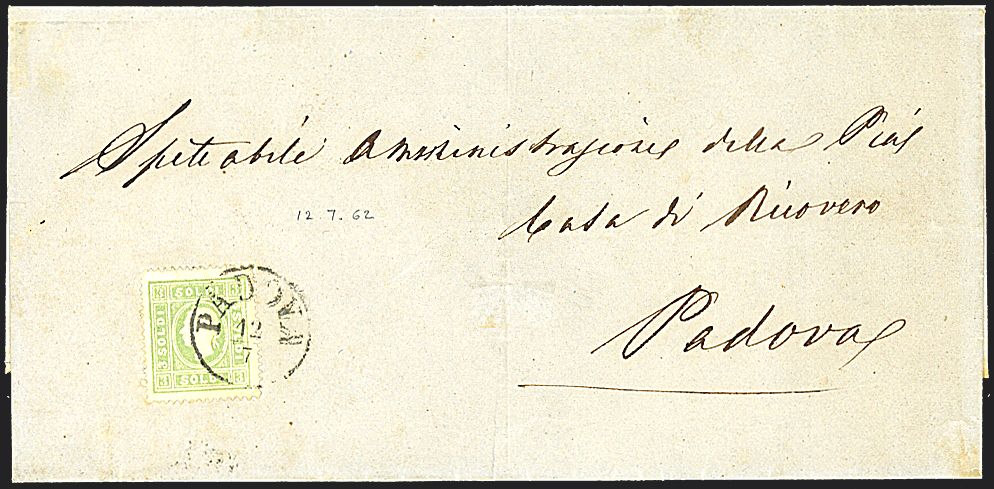 Spetabile Amministrazione della Pia
12 7. 62
Casa di Ricovero
Padova
PADOVA
12
7
3 SOLDI 3
SOLDI
3 SOLDI 3